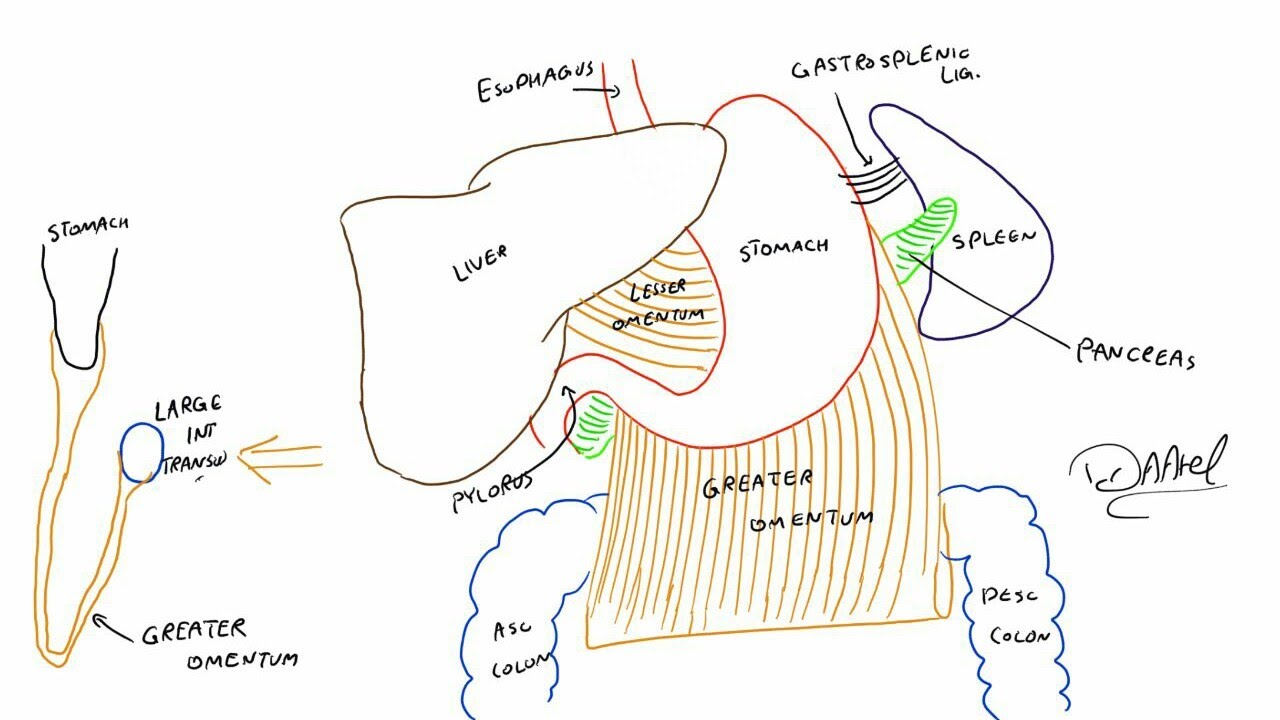 ESOPHAGUS
GASTROSPLENIC
LIG.
STOMACH
LIVER
STOMACH
SPLEEN
LESSER
OMENTUM
PANCREAS
LARGE
INT
PYLORUS
GREATER
OMENTUM
ASC
COLON
DESC
COLON
GREATER
OMENTUM